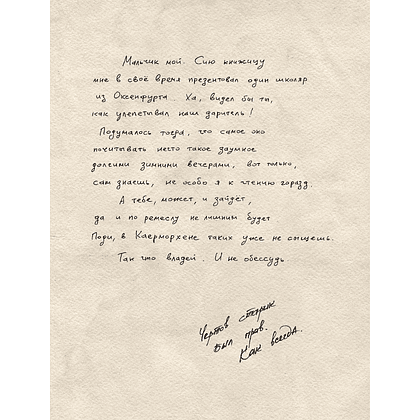 Мальчик мой. Сию книжицу
мне в своё время презентовал один школяр
из Оксенфурта. Ха, видел бы ты,
как улепётывал наш даритель!
Подумалось тогда, что самое оно
почитывать нечто такое заумное
долгими зимними вечерами, вот только,
сам знаешь, не особо я к чтению горазд.
А тебе, может, и зайдёт,
да и по ремеслу не лишним будет
Поди, в Каерморхене таких уже не сыщешь.
Так что владей. И не обессудь
Чертов старик
был прав.
Как всегда.